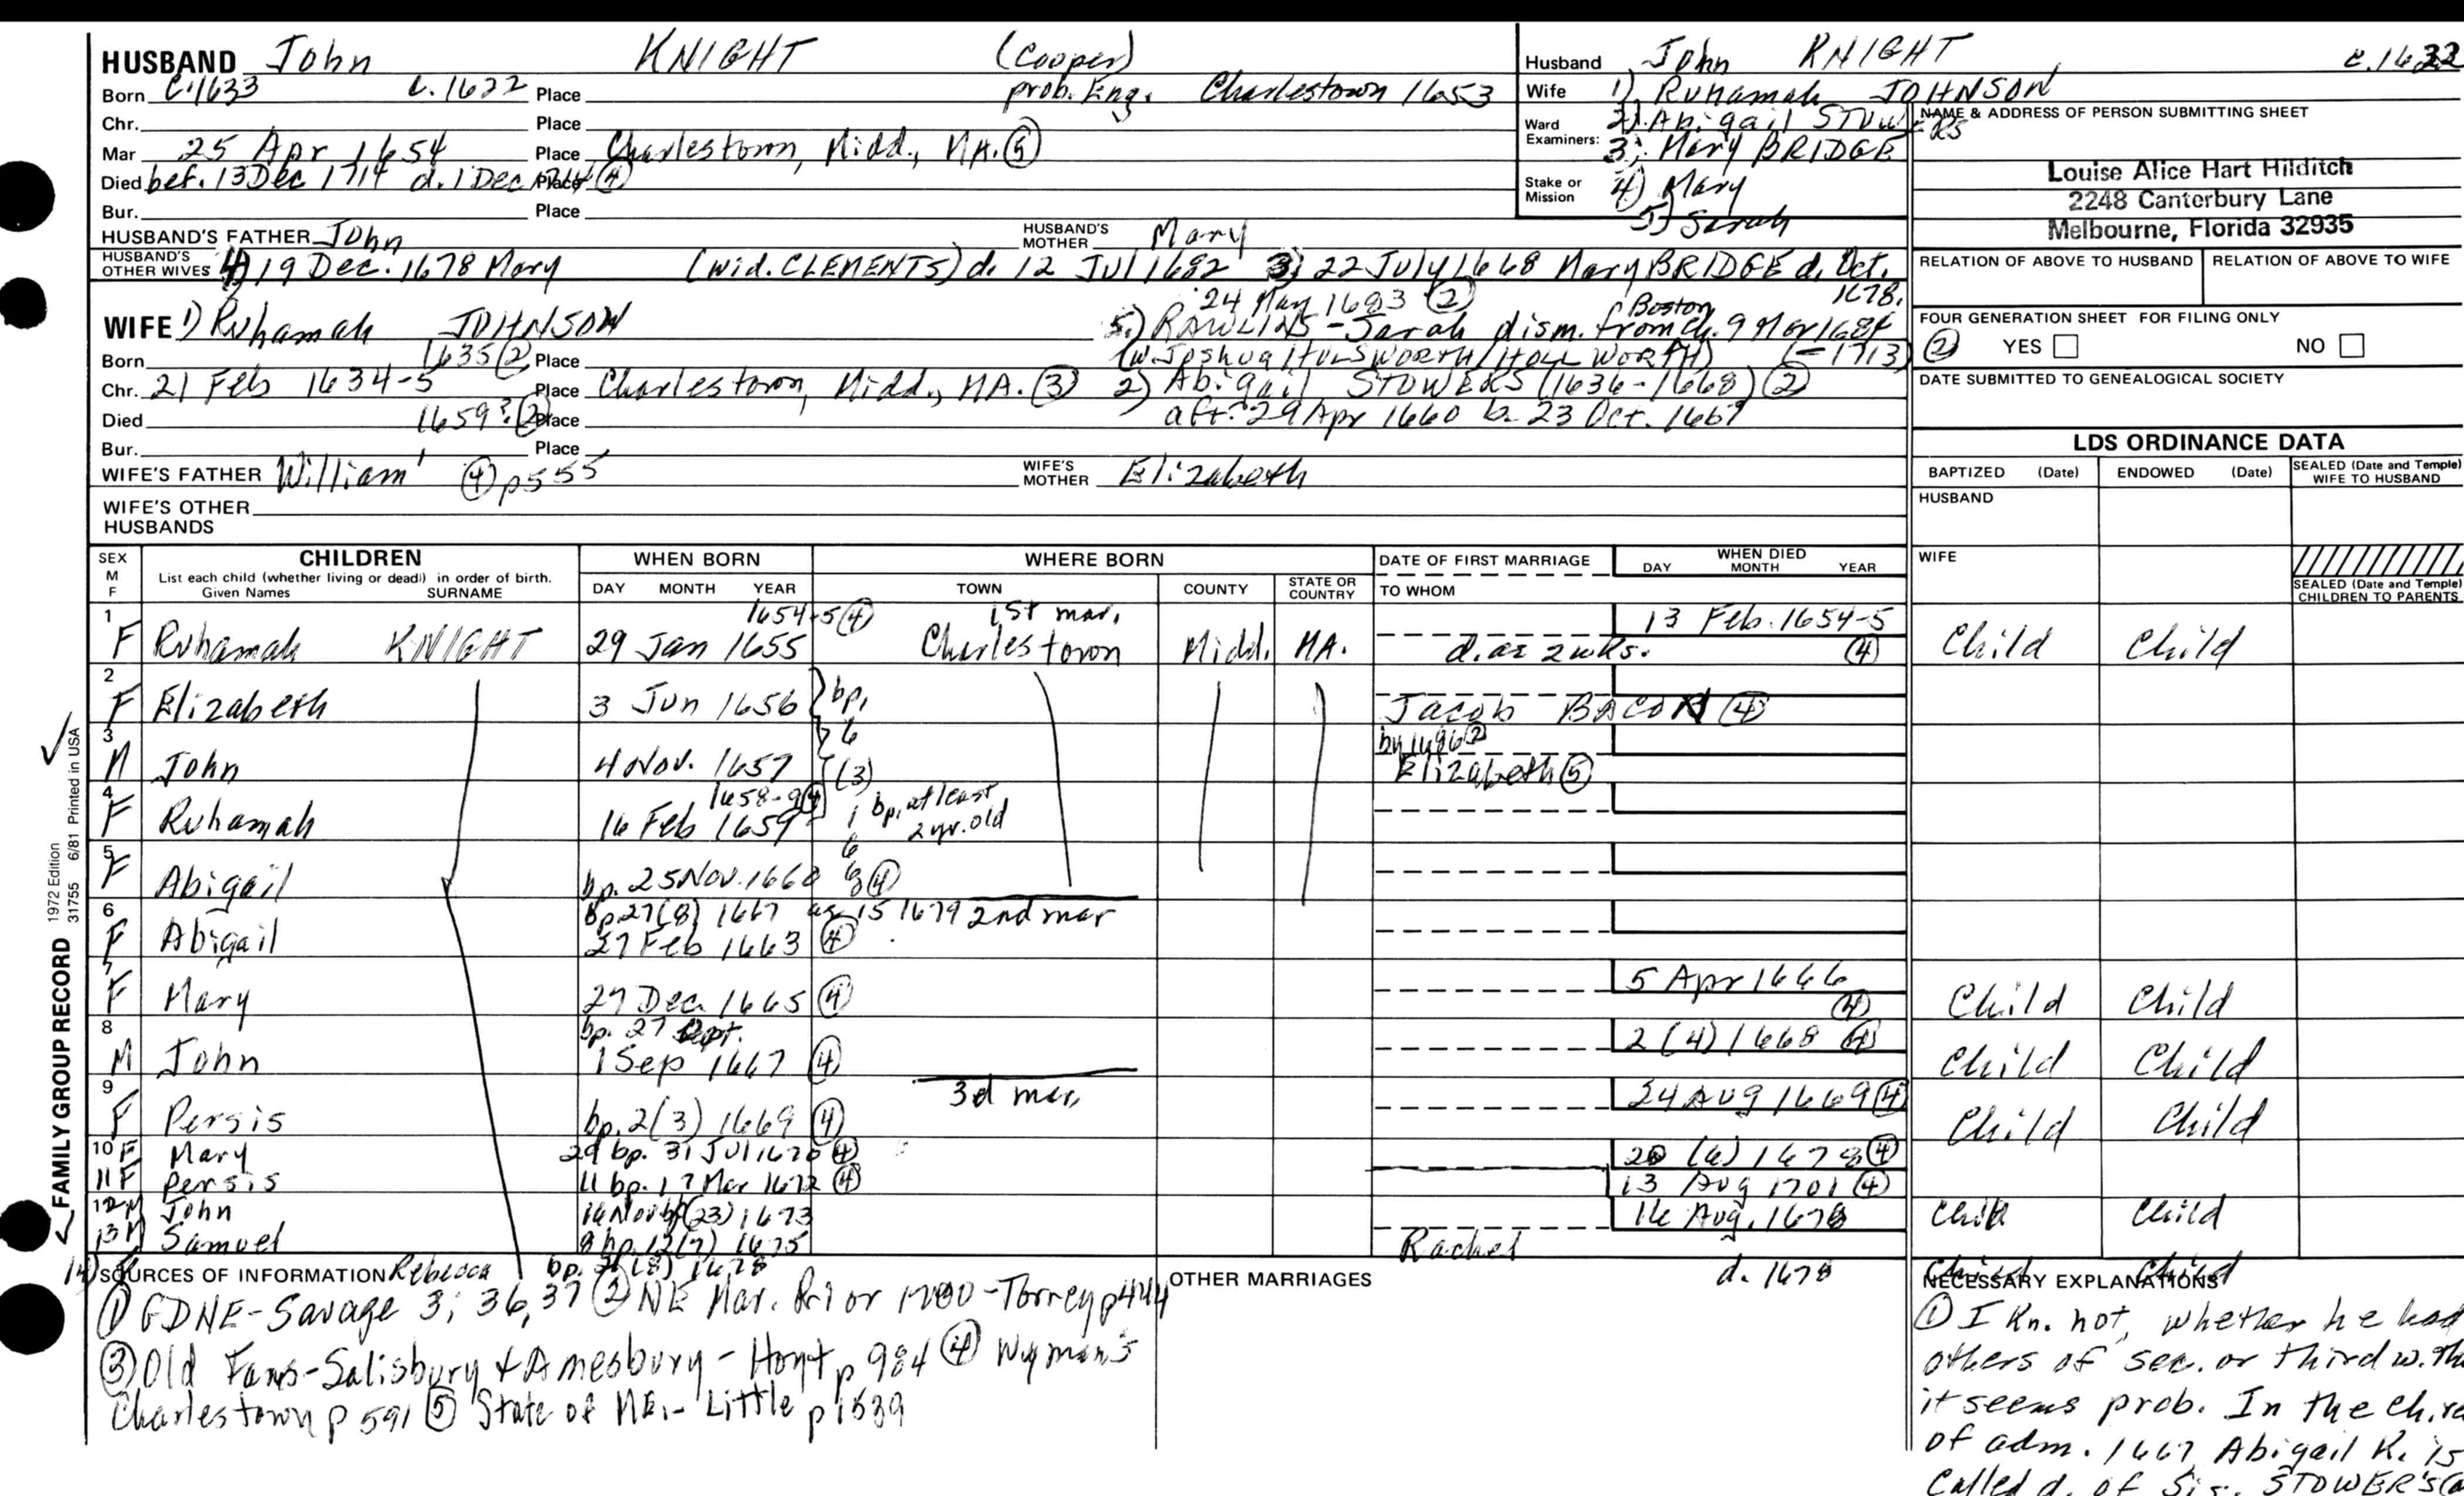 HUSBAND John KNIGHT (Cooper)
Born C.1633 c.1622 Place prob. Eng. Charlestown 1653
Chr. Place
Mar 25 Apr 1654 Place Charlestown, Midd., MA. (5)
Died bef. 13 Dec 1714 d. 1 Dec Place (4)
Bur. Place
HUSBAND'S FATHER John HUSBAND'S MOTHER Mary
HUSBAND'S OTHER WIVES 4) 19 Dec. 1678 Mary (wid. CLEMENTS) d. 12 Jul 1682 3) 22 July 1668 Mary BRIDGE d. Oct. 1678.
Husband John KNIGHT c.1622
Wife 1) Ruhamah JOHNSON
Ward 2) Abigail STOWERS
Examiners: 3) Mary BRIDGE
Stake or Mission 4) Mary
5) Sarah
NAME & ADDRESS OF PERSON SUBMITTING SHEET
Louise Alice Hart Hilditch
2248 Canterbury Lane
Melbourne, Florida 32935
RELATION OF ABOVE TO HUSBAND RELATION OF ABOVE TO WIFE
FOUR GENERATION SHEET FOR FILING ONLY
YES NO
DATE SUBMITTED TO GENEALOGICAL SOCIETY
WIFE 1) Ruhamah JOHNSON
Born 1635 (2) Place
Chr. 21 Feb 1634-5 Place Charlestown, Midd., MA. (3)
Died 1659? (2) Place
Bur. Place
24 May 1683 (2)
5) RAWLINS - Sarah dism. from Boston ch. 9 Mar 1684
(w. Joshua HULSWORTH/HOLLWORTH) (-1713) (2)
2) Abigail STOWERS (1636-1668) (2)
aft. 29 Apr 1660 b. 23 Oct. 1667
WIFE'S FATHER William (4) p555 WIFE'S MOTHER Elizabeth
WIFE'S OTHER HUSBANDS
LDS ORDINANCE DATA
BAPTIZED (Date) ENDOWED (Date) SEALED (Date and Temple) WIFE TO HUSBAND
HUSBAND
WIFE
SEALED (Date and Temple) CHILDREN TO PARENTS
SEX M F CHILDREN WHEN BORN WHERE BORN DATE OF FIRST MARRIAGE WHEN DIED
List each child (whether living or dead) in order of birth.
Given Names SURNAME DAY MONTH YEAR TOWN COUNTY STATE OR COUNTRY TO WHOM DAY MONTH YEAR
1654-5 (4) 1st mar. 13 Feb. 1654-5
1 F Ruhamah KNIGHT 29 Jan 1655 Charlestown Midd. MA. d. ae 2 wks. (4) Child Child
2 F Elizabeth 3 Jun 1656 bp. Jacob BACON (4)
3 M John 4 Nov. 1657 6 (3) by 1686 (2) Elizabeth (5)
4 F Ruhamah 1658-9 (4) 16 Feb 1659 bp. at least 2 yr. old
5 F Abigail bp. 25 Nov. 1660 (4)
6 F Abigail bp. 27 (8) 1667 ae 15 1679 2nd mar
27 Feb 1663 (4)
7 F Mary 27 Dec. 1665 (4) 5 Apr 1666 (4) Child Child
bp. 27 Sept.
8 M John 1 Sep 1667 (4) 2 (4) 1668 (4) Child Child
3d mar.
9 F Persis bp. 2 (3) 1669 (4) 24 Aug 1669 (4) Child Child
10 F Mary 29 bp. 31 Jul 1670 (4) 20 (6) 1678 (4)
11 F Persis 11 bp. 17 Mar 1672 (4) 13 Aug 1701 (4)
12 M John 16 Nov bp (23) 1673 16 Aug. 1678 Child Child
13 M Samuel 9 bp. 12 (7) 1675 Rachel
14) Rebecca bp. (8) 1678 d. 1678 Child Child
SOURCES OF INFORMATION
(1) GDNE-Savage 3; 36, 37 (2) NE Mar. Prior 1700 - Torrey p444
(3) Old Fams-Salisbury & Amesbury - Hoyt p 984 (4) Wyman's
Charlestown p 591 (5) State of ME. - Little p 1539
OTHER MARRIAGES
NECESSARY EXPLANATIONS
(1) I kn. not, whether he had
others of sec. or third w. Tho
it seems prob. In the ch. re
of adm. 1667 Abigail K. is
called d. of Sis. STOWER'S
FAMILY GROUP RECORD 1972 Edition
31755 6/81 Printed in USA